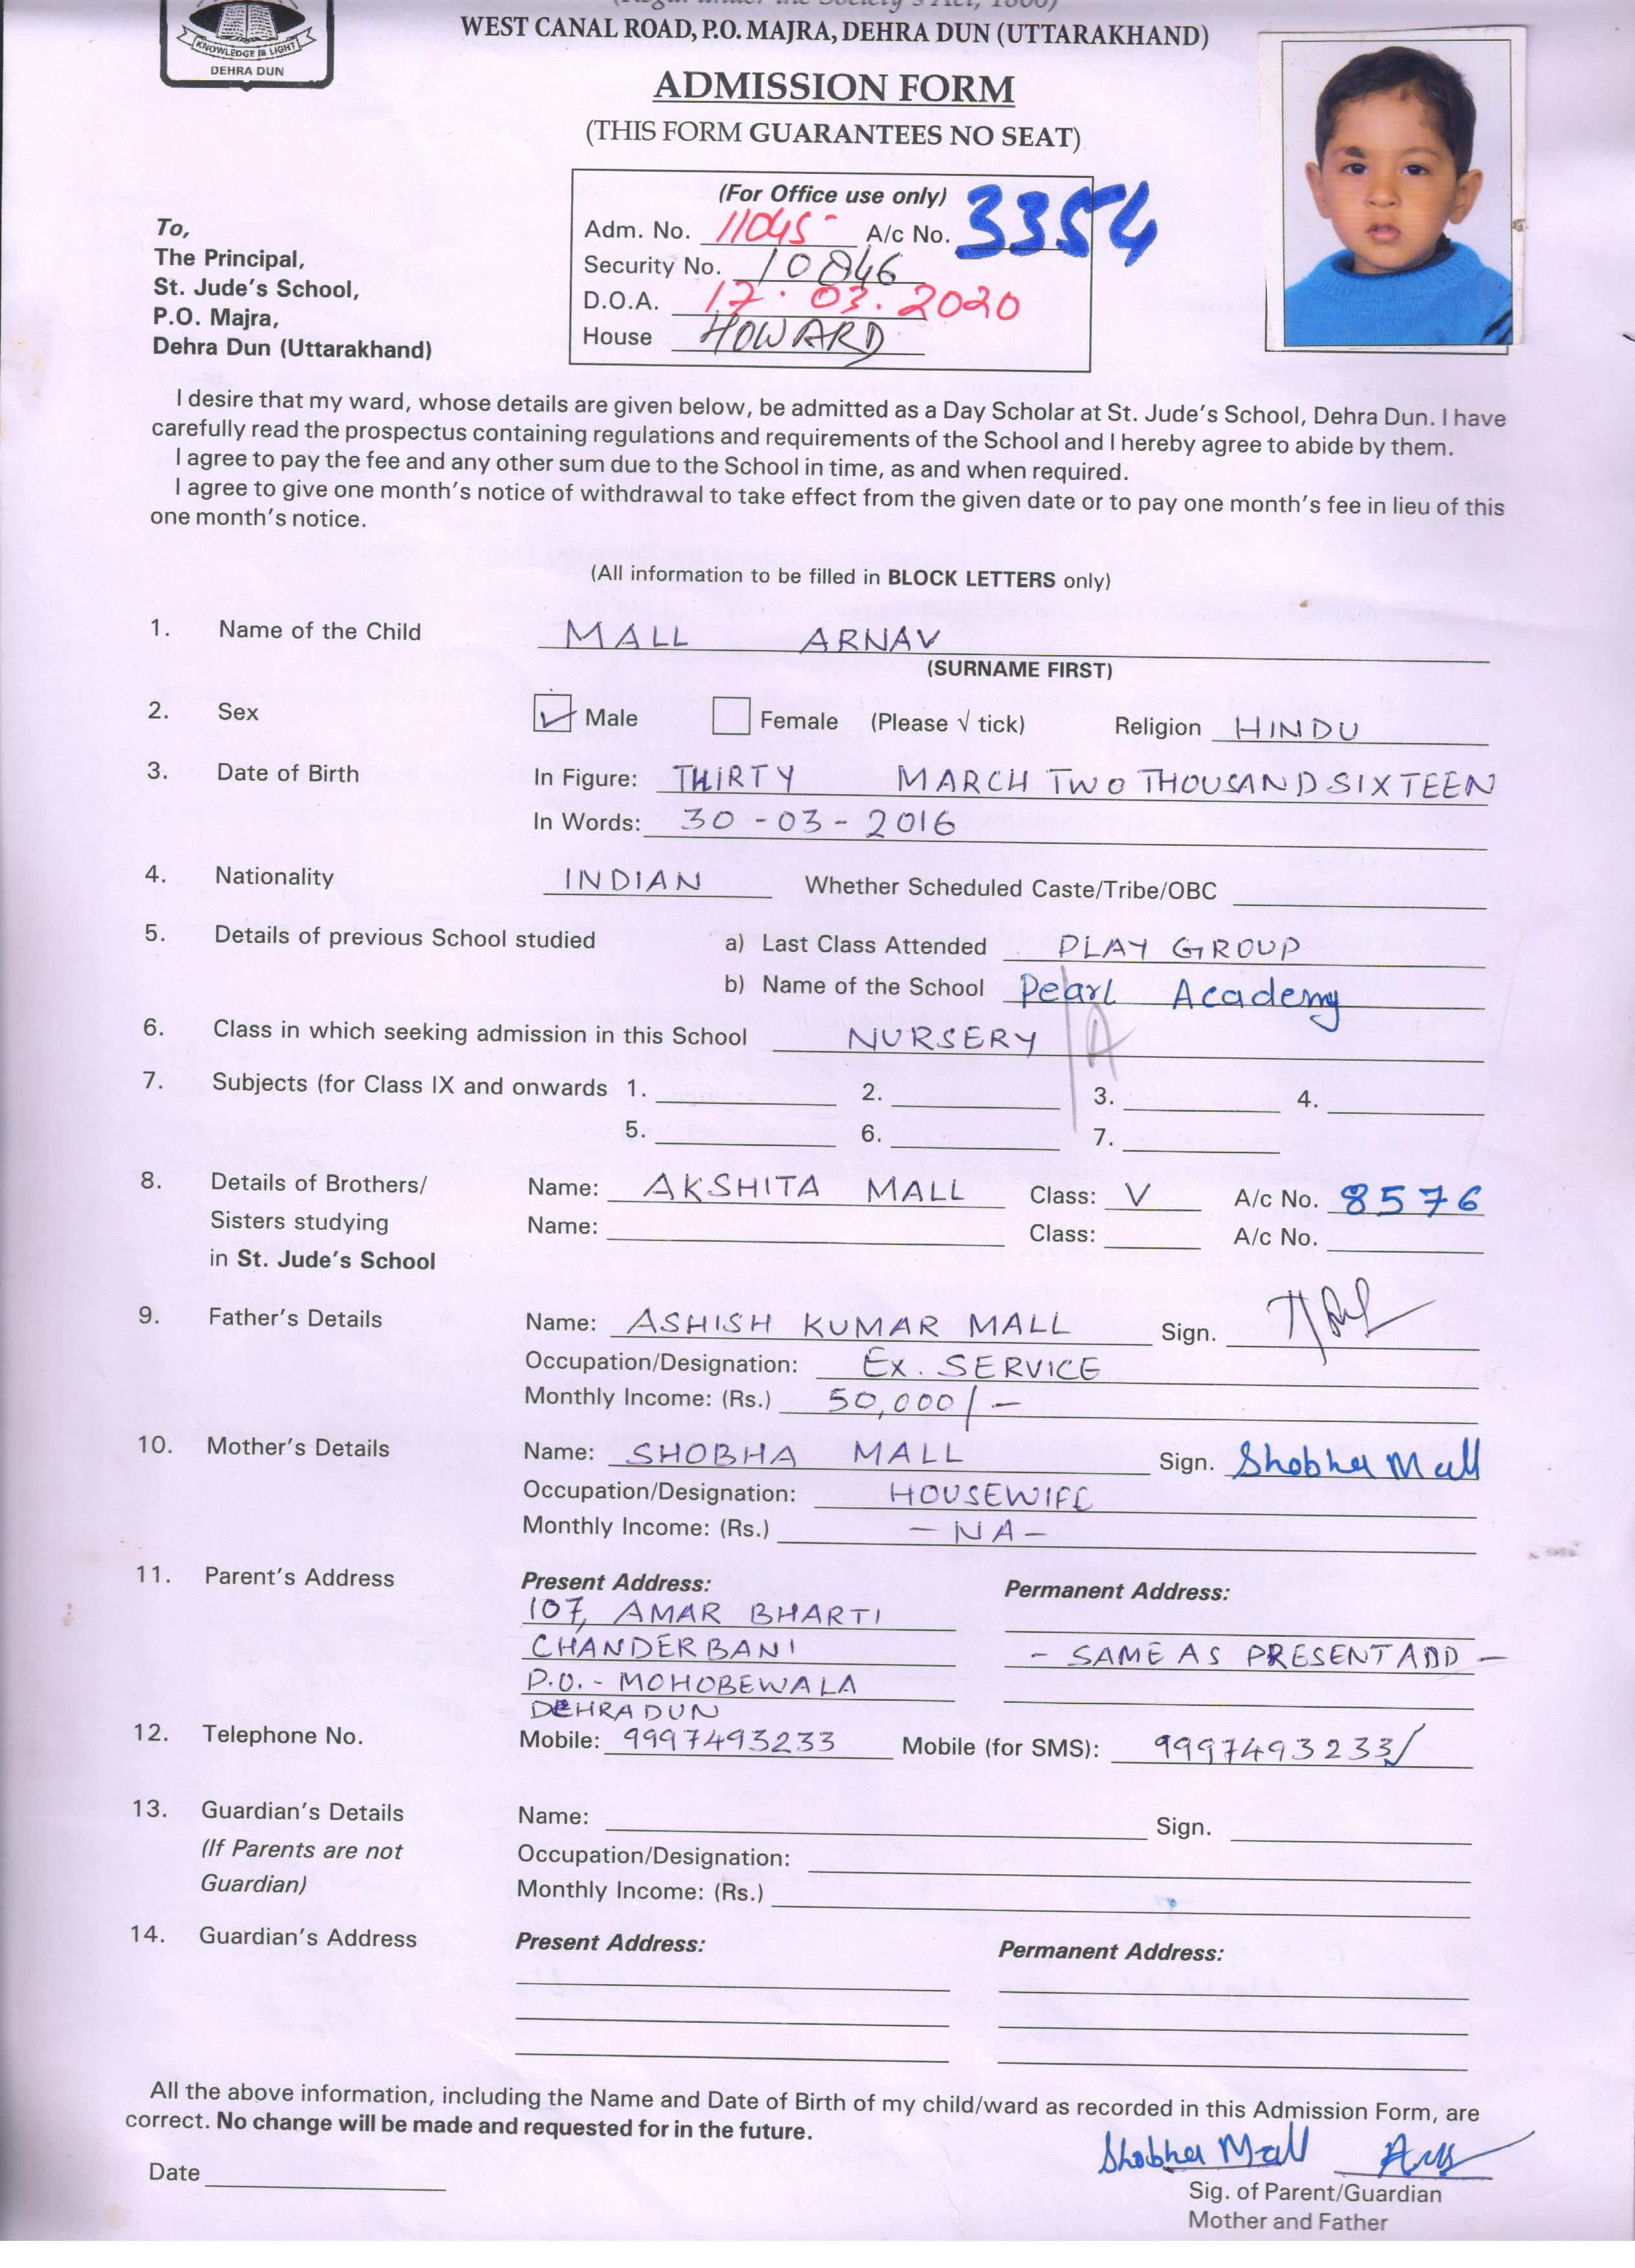 KNOWLEDGE IS LIGHT
DEHRA DUN
WEST CANAL ROAD, P.O. MAJRA, DEHRA DUN (UTTARAKHAND)
ADMISSION FORM
(THIS FORM GUARANTEES NO SEAT)
(For Office use only)
Adm. No. 11045 A/c No. 3354
Security No. 10846
D.O.A. 17.03.2020
House HOWARD
To,
The Principal,
St. Jude's School,
P.O. Majra,
Dehra Dun (Uttarakhand)
I desire that my ward, whose details are given below, be admitted as a Day Scholar at St. Jude's School, Dehra Dun. I have
carefully read the prospectus containing regulations and requirements of the School and I hereby agree to abide by them.
I agree to pay the fee and any other sum due to the School in time, as and when required.
I agree to give one month's notice of withdrawal to take effect from the given date or to pay one month's fee in lieu of this
one month's notice.
(All information to be filled in BLOCK LETTERS only)
1. Name of the Child MALL ARNAV
(SURNAME FIRST)
2. Sex ✓ Male Female (Please √ tick) Religion HINDU
3. Date of Birth In Figure: THIRTY MARCH TWO THOUSAND SIXTEEN
In Words: 30-03-2016
4. Nationality INDIAN Whether Scheduled Caste/Tribe/OBC
5. Details of previous School studied a) Last Class Attended PLAY GROUP
b) Name of the School Pearl Academy
6. Class in which seeking admission in this School NURSERY /A
7. Subjects (for Class IX and onwards 1. 2. 3. 4.
5. 6. 7.
8. Details of Brothers/ Name: AKSHITA MALL Class: V A/c No. 8576
Sisters studying Name: Class: A/c No.
in St. Jude's School
9. Father's Details Name: ASHISH KUMAR MALL Sign.
Occupation/Designation: EX. SERVICE
Monthly Income: (Rs.) 50,000/-
10. Mother's Details Name: SHOBHA MALL Sign. Shobha Mall
Occupation/Designation: HOUSEWIFE
Monthly Income: (Rs.) - NA -
11. Parent's Address Present Address: Permanent Address:
107, AMAR BHARTI
CHANDERBANI - SAME AS PRESENT ADD -
P.O. - MOHOBEWALA
DEHRADUN
12. Telephone No. Mobile: 9997493233 Mobile (for SMS): 9997493233/
13. Guardian's Details Name: Sign.
(If Parents are not Occupation/Designation:
Guardian) Monthly Income: (Rs.)
14. Guardian's Address Present Address: Permanent Address:
All the above information, including the Name and Date of Birth of my child/ward as recorded in this Admission Form, are
correct. No change will be made and requested for in the future.
Shobha Mall
Date
Sig. of Parent/Guardian
Mother and Father